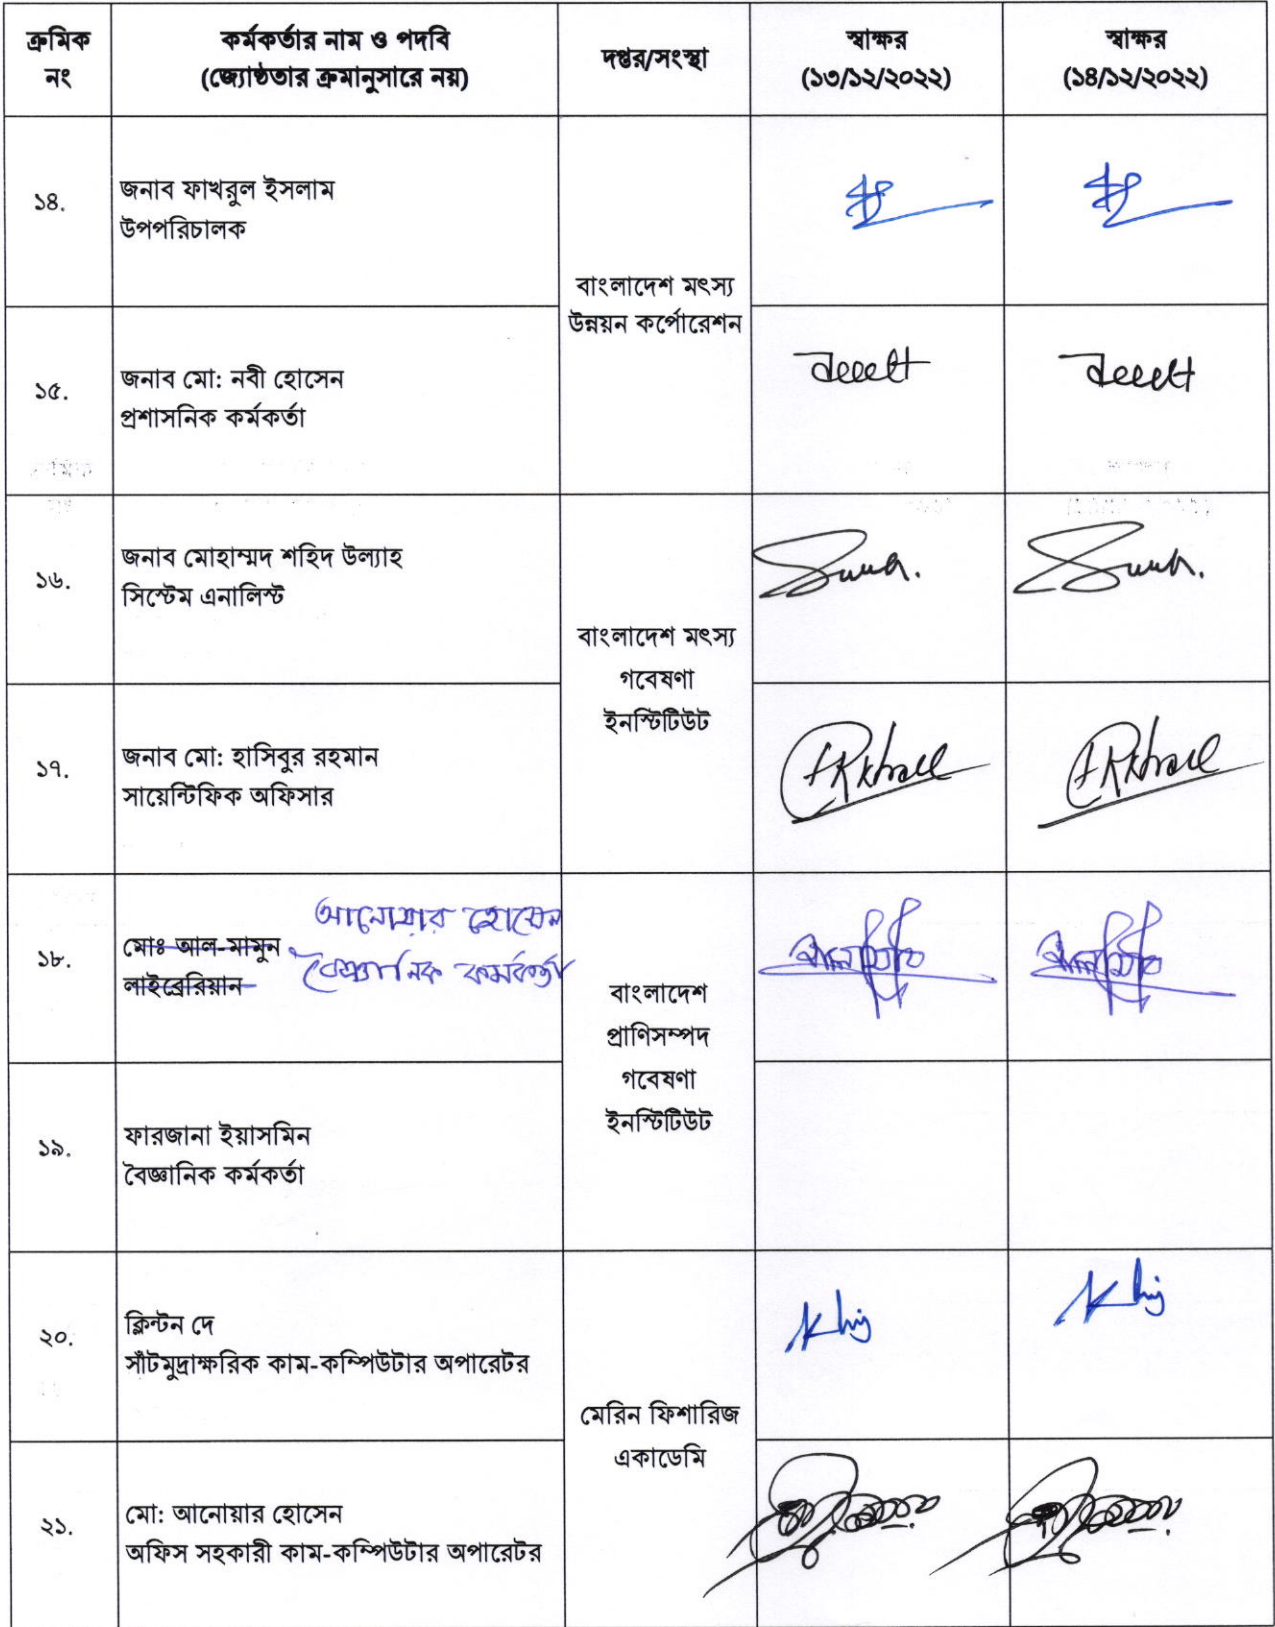 ক্রমিক নং
কর্মকর্তার নাম ও পদবি
(জ্যেষ্ঠতার ক্রমানুসারে নয়)
দপ্তর/সংস্থা
স্বাক্ষর
(১৩/১২/২০২২)
স্বাক্ষর
(১৪/১২/২০২২)
১৪.
জনাব ফাখরুল ইসলাম
উপপরিচালক
বাংলাদেশ মৎস্য
উন্নয়ন কর্পোরেশন
১৫.
জনাব মো: নবী হোসেন
প্রশাসনিক কর্মকর্তা
১৬.
জনাব মোহাম্মদ শহিদ উল্যাহ
সিস্টেম এনালিস্ট
বাংলাদেশ মৎস্য
গবেষণা
ইনস্টিটিউট
১৭.
জনাব মো: হাসিবুর রহমান
সায়েন্টিফিক অফিসার
১৮.
মোঃ আল-মামুন
লাইব্রেরিয়ান
আনোয়ার হোসেন
বৈজ্ঞানিক কর্মকর্তা
বাংলাদেশ
প্রাণিসম্পদ
গবেষণা
ইনস্টিটিউট
১৯.
ফারজানা ইয়াসমিন
বৈজ্ঞানিক কর্মকর্তা
২০.
ক্লিন্টন দে
সাঁটমুদ্রাক্ষরিক কাম-কম্পিউটার অপারেটর
মেরিন ফিশারিজ
একাডেমি
২১.
মো: আনোয়ার হোসেন
অফিস সহকারী কাম-কম্পিউটার অপারেটর